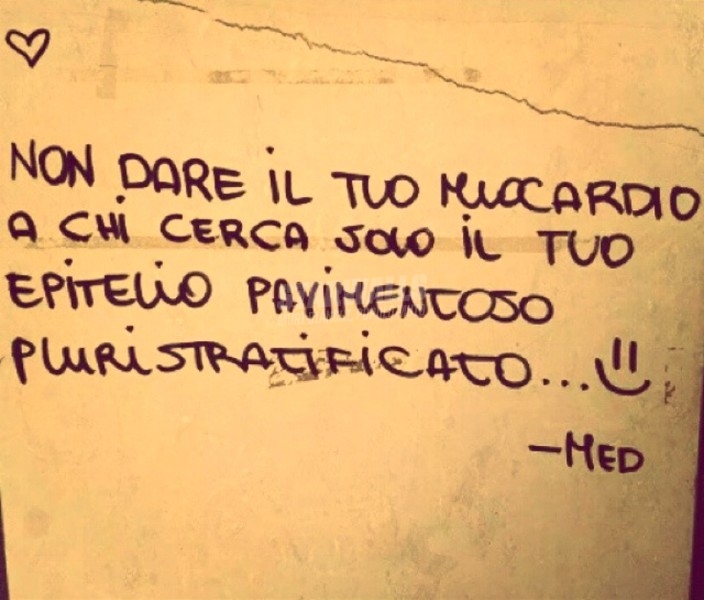 NON DARE IL TUO MIOCARDIO
A CHI CERCA SOLO IL TUO
EPITELIO PAVIMENTOSO
PLURISTRATIFICATO...
–MED